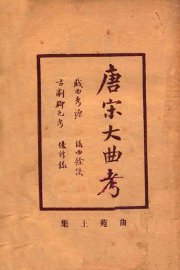 唐宋大曲考
戲曲考源　錄曲餘談
古劇腳色考　優語錄
六藝書局